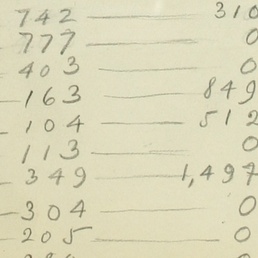 742 — 310
777 — 0
403 — 0
163 — 849
104 — 512
113 — 0
349 — 1,497
304 — 0
205 — 0